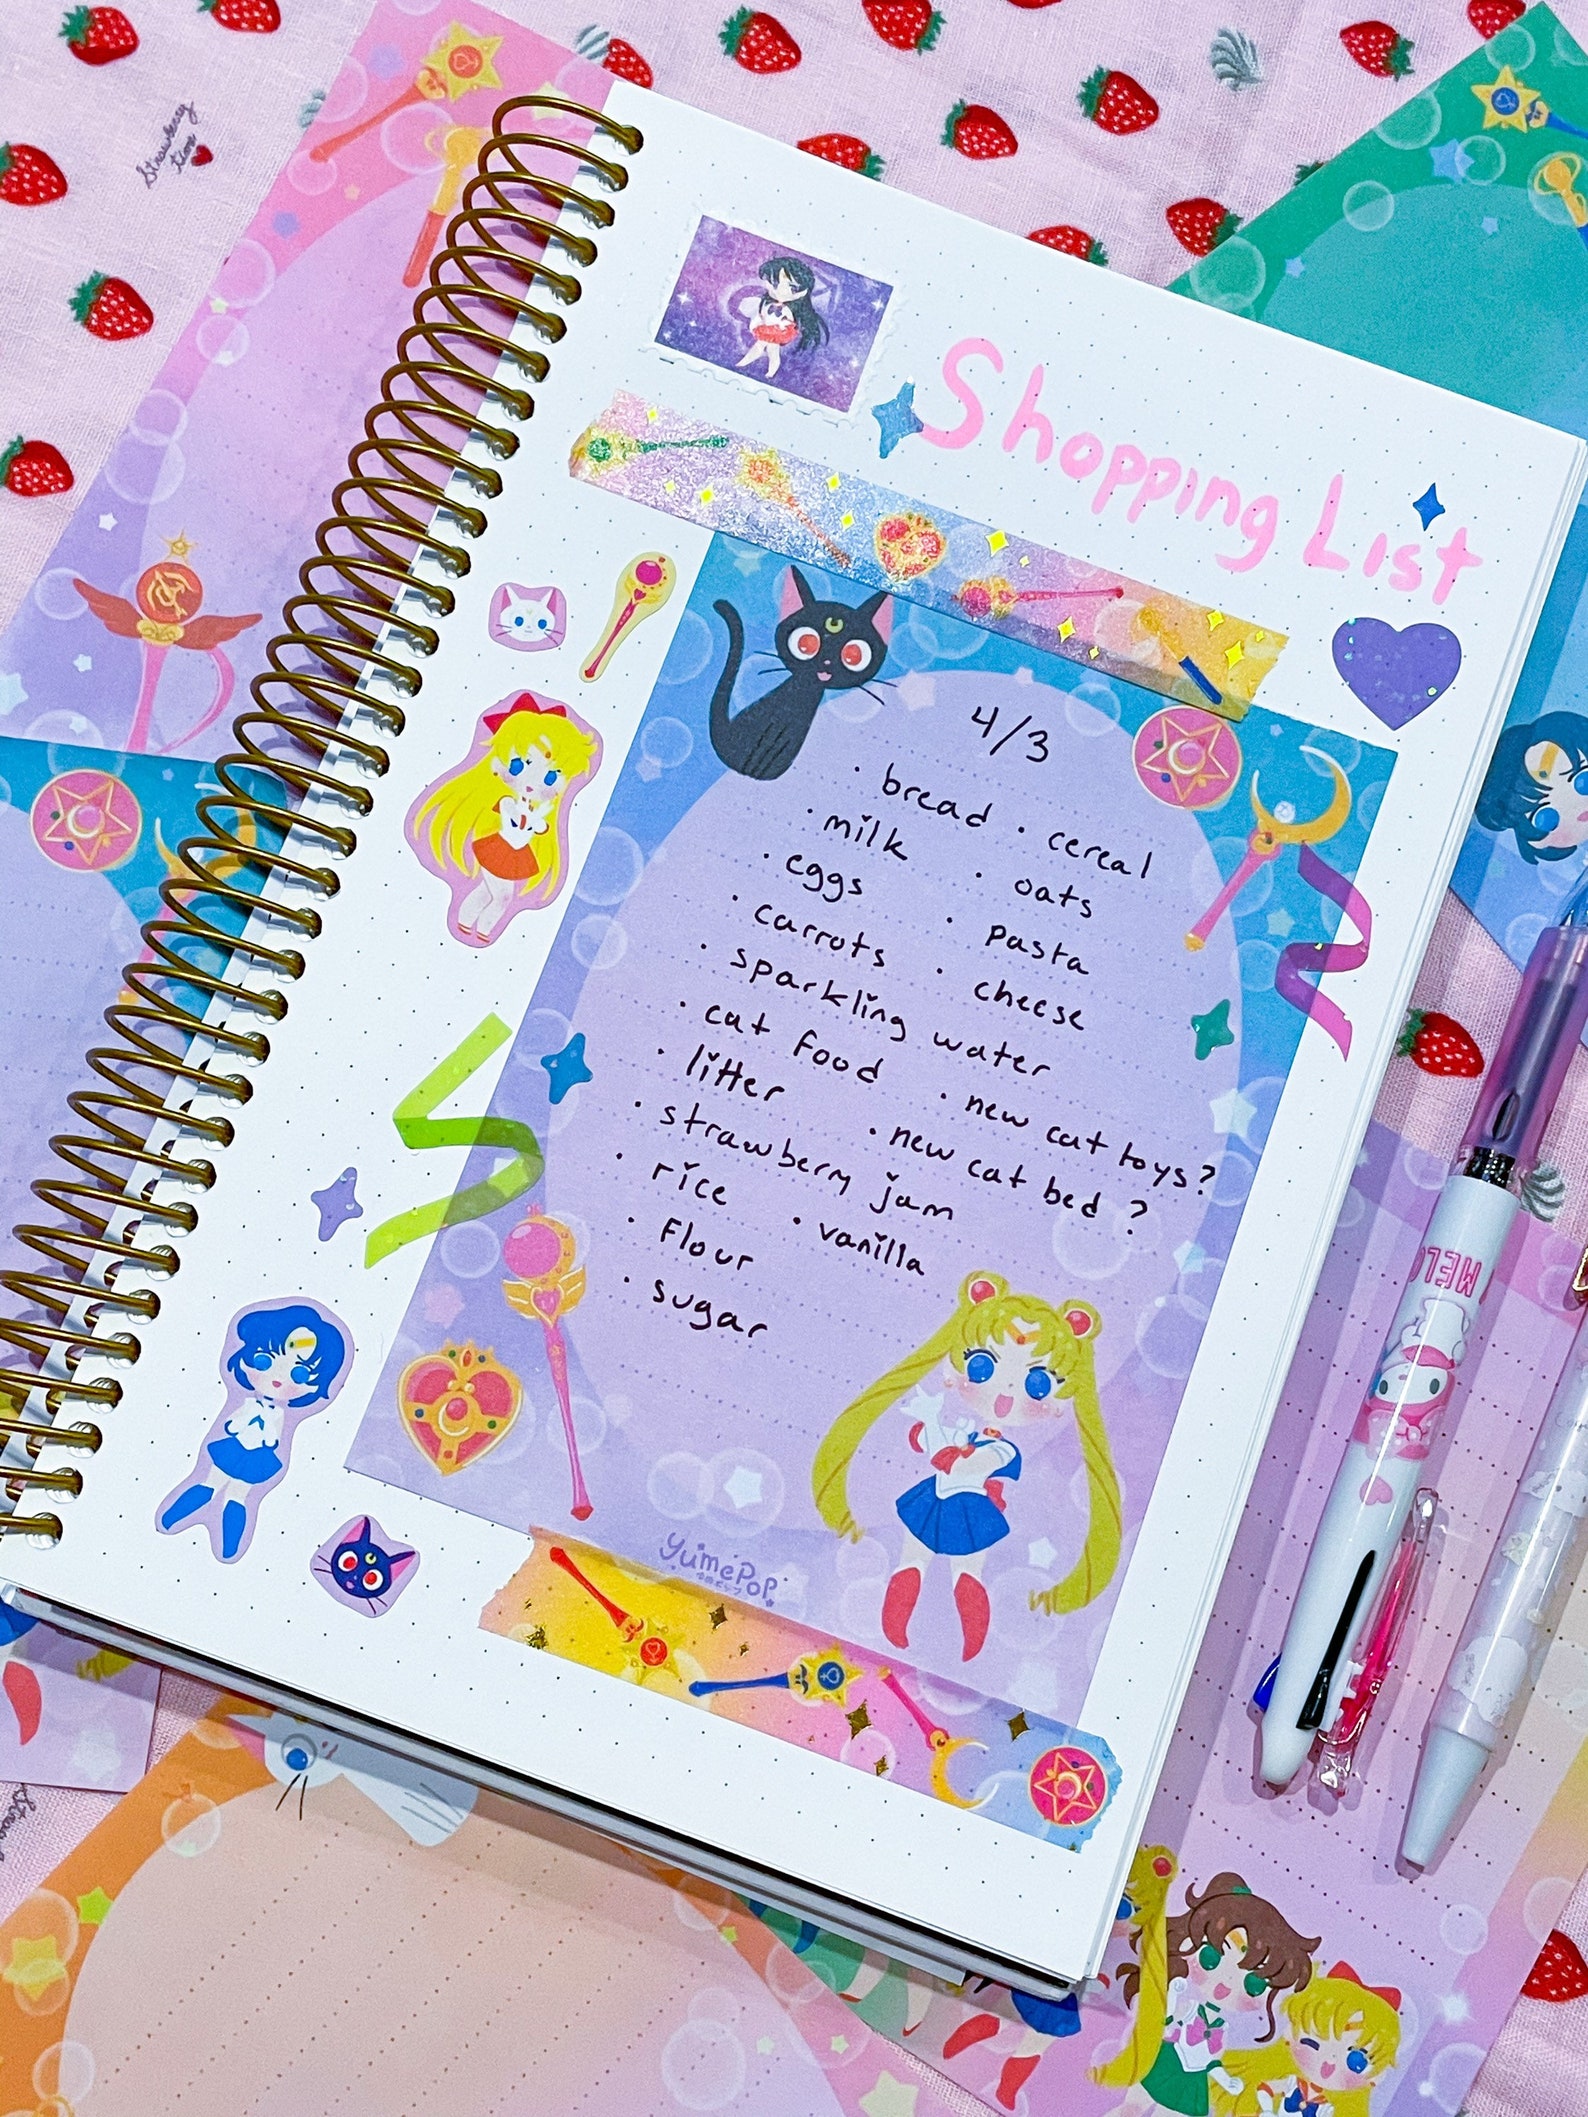 Strawberry
time
Shopping List
4/3
· bread · cereal
· milk · oats
· eggs · pasta
· carrots · cheese
· sparkling water
· cat food · new cat toys?
· litter · new cat bed ?
· strawberry jam
· rice · vanilla
· flour
· sugar
YumePop
MELO